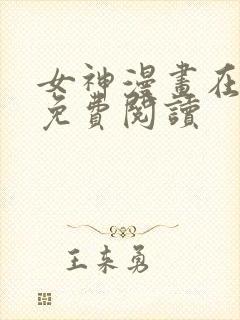 女神漫畫在
免費閱讀
王来勇